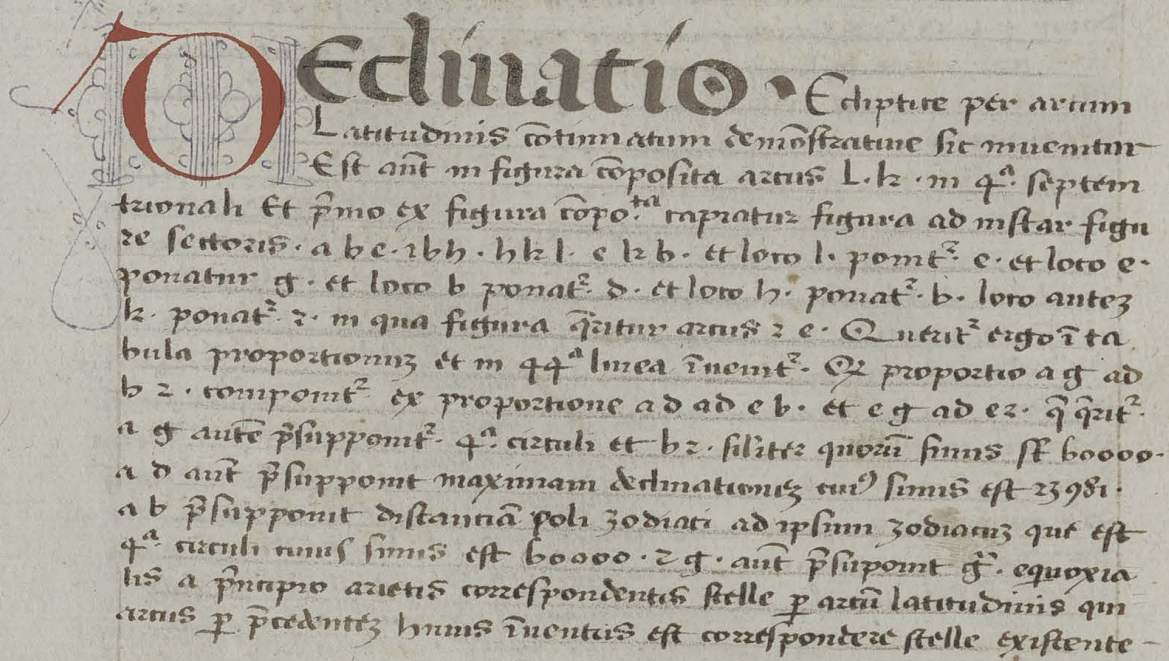 Declinatio · Ecliptice per arcum
Latitudinis cōtinuatum demōstrative sic invenitur
Est aūt in figura cōposita arcus l · k · in 4ᵃ · septem
trionali Et p̄mo ex figura cōpo.ᵗᵃ capiatur figura ad instar figu
re sectoris · a b e · z b h · h k l · e k b · et loco l · ponitᷣ · e · et loco e ·
ponatur g · et loco b ponatᷣ · d · et loco h · ponatᷣ · b · loco autez
k · ponatᷣ · z · in qua figura q̄ritur arcus z e · Queritᷣ ergo ī ta
bula proportionuz et in 44ᵃ linea īvenitᷣ · Qz proportio a g ad
b z · componitᷣ ex proportione a d ad e b · et e g ad e z · q̄ q̄ritᷣ ·
a g autē p̄supponitᷣ · 4ᵃ · circuli et b z · siliter quorū sinus sūt 60000 ·
a d aūt p̄supponit maximam declinationez cuiꝰ sinus est 23981 ·
a b p̄supponit distanciā poli zodiaci ad ipsum zodiacuz que est
4ᵃ · circuli cuius sinus est 60000 · z g · aūt p̄supponit g̃ · equoxia
lis a p̄ncipio arietis correspondentis stelle ꝑ arcū latitudinis qui
arcus ꝑ p̄cedentez huius īventus est correspondere stelle existente